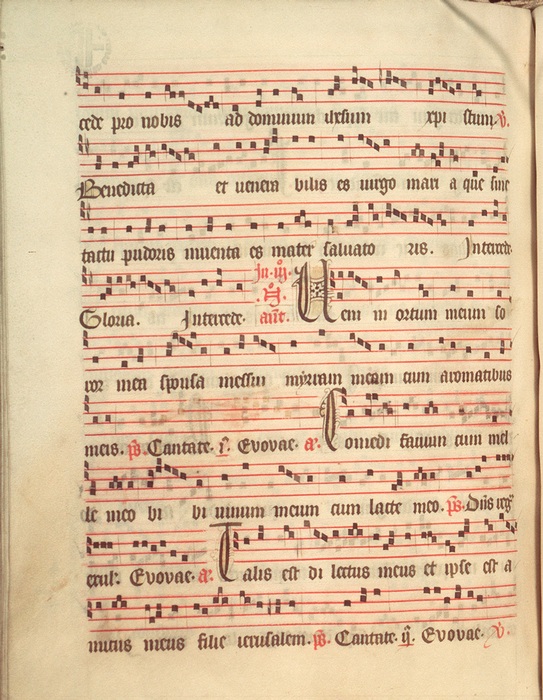 cede pro nobis ad dominum ihesum xpi stum. V.
Benedicta et venera bilis es virgo mari a que sine
tactu pudoris inventa es mater salvato ris. Intercede
In. iij. N.
Gloria. Intercede. añe. Veni in ortum meum so
ror mea sponsa messui myrram meam cum aromatibus
meis. ps. Cantate. i. Evovae. a. Comedi favum cum mel
le meo bi bi vinum meum cum lacte meo. ps. Dñs reg
exul. Evovae. a. Talis est di lectus meus et ipse est a
micus meus filie ierusalem. ps. Cantate. ij. Evovae. V.